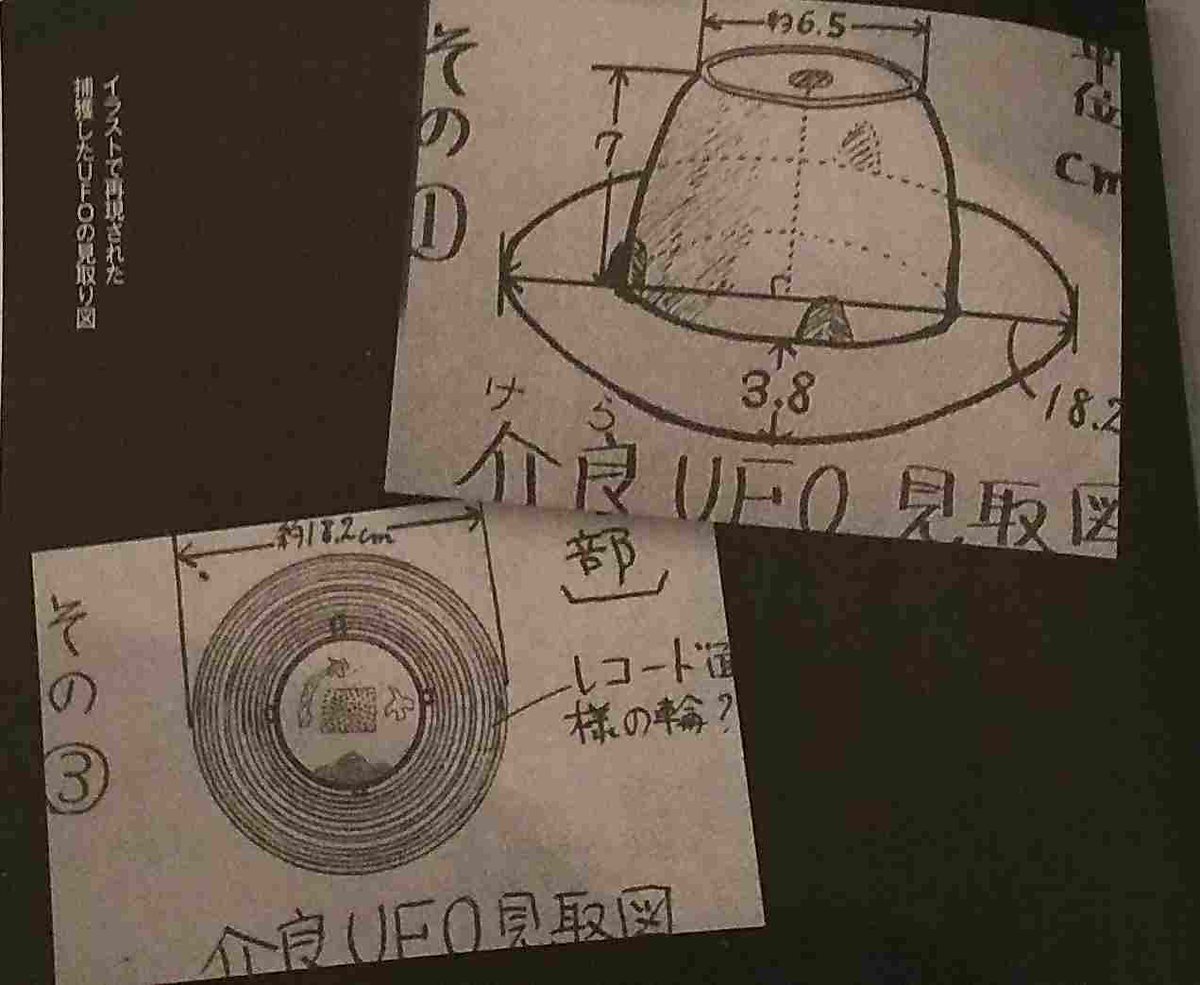 イラストで再現された
捕獲したUFOの見取り図
その①
約6.5
単位
cm
7
3.8
18.2
けら
介良UFO見取図
その③
約18.2cm
部
レコード面
様の輪?
介良UFO見取図